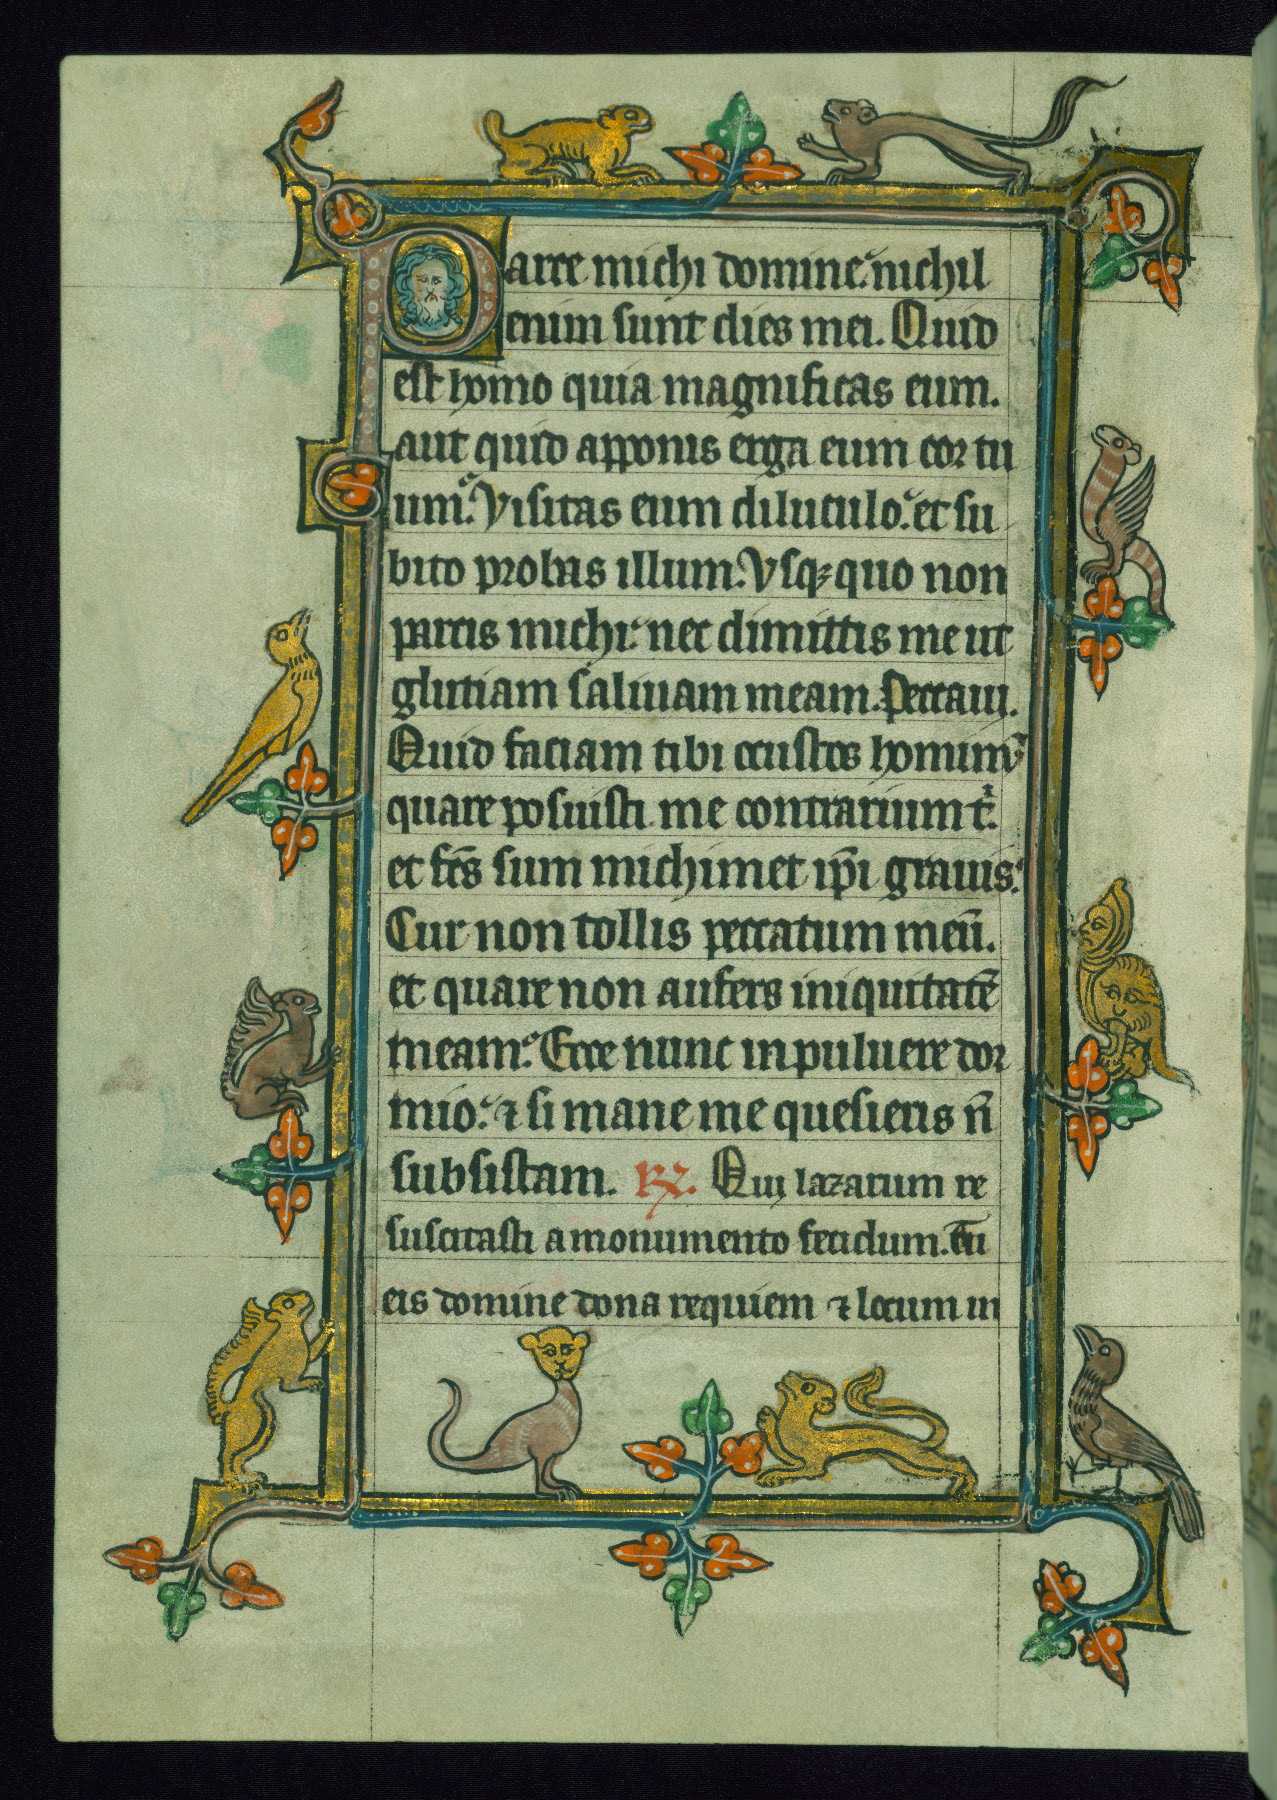 Parce michi domine: nichil
enim sunt dies mei. Quid
est homo quia magnificas eum.
aut quid apponis erga eum cor tu
um: Visitas eum diluculo: et su
bito probas illum: Vsqꝫ quo non
parcis michi: nec dimittis me ut
glutiam saliuam meam. Peccaui.
Quid faciam tibi o custos hominū
quare posuisti me contrarium tⁱ.
et fc̄s sum michimet ip̄i grauis:
Cur non tollis peccatum meū.
et quare non aufers iniquitatē
meam: Ecce nunc in puluere dor
mio: ⁊ si mane me quesieris n̄
subsistam. R℣. Qui lazarum re
suscitasti a monumento fetidum. Tu
eis domine dona requiem ⁊ locum in